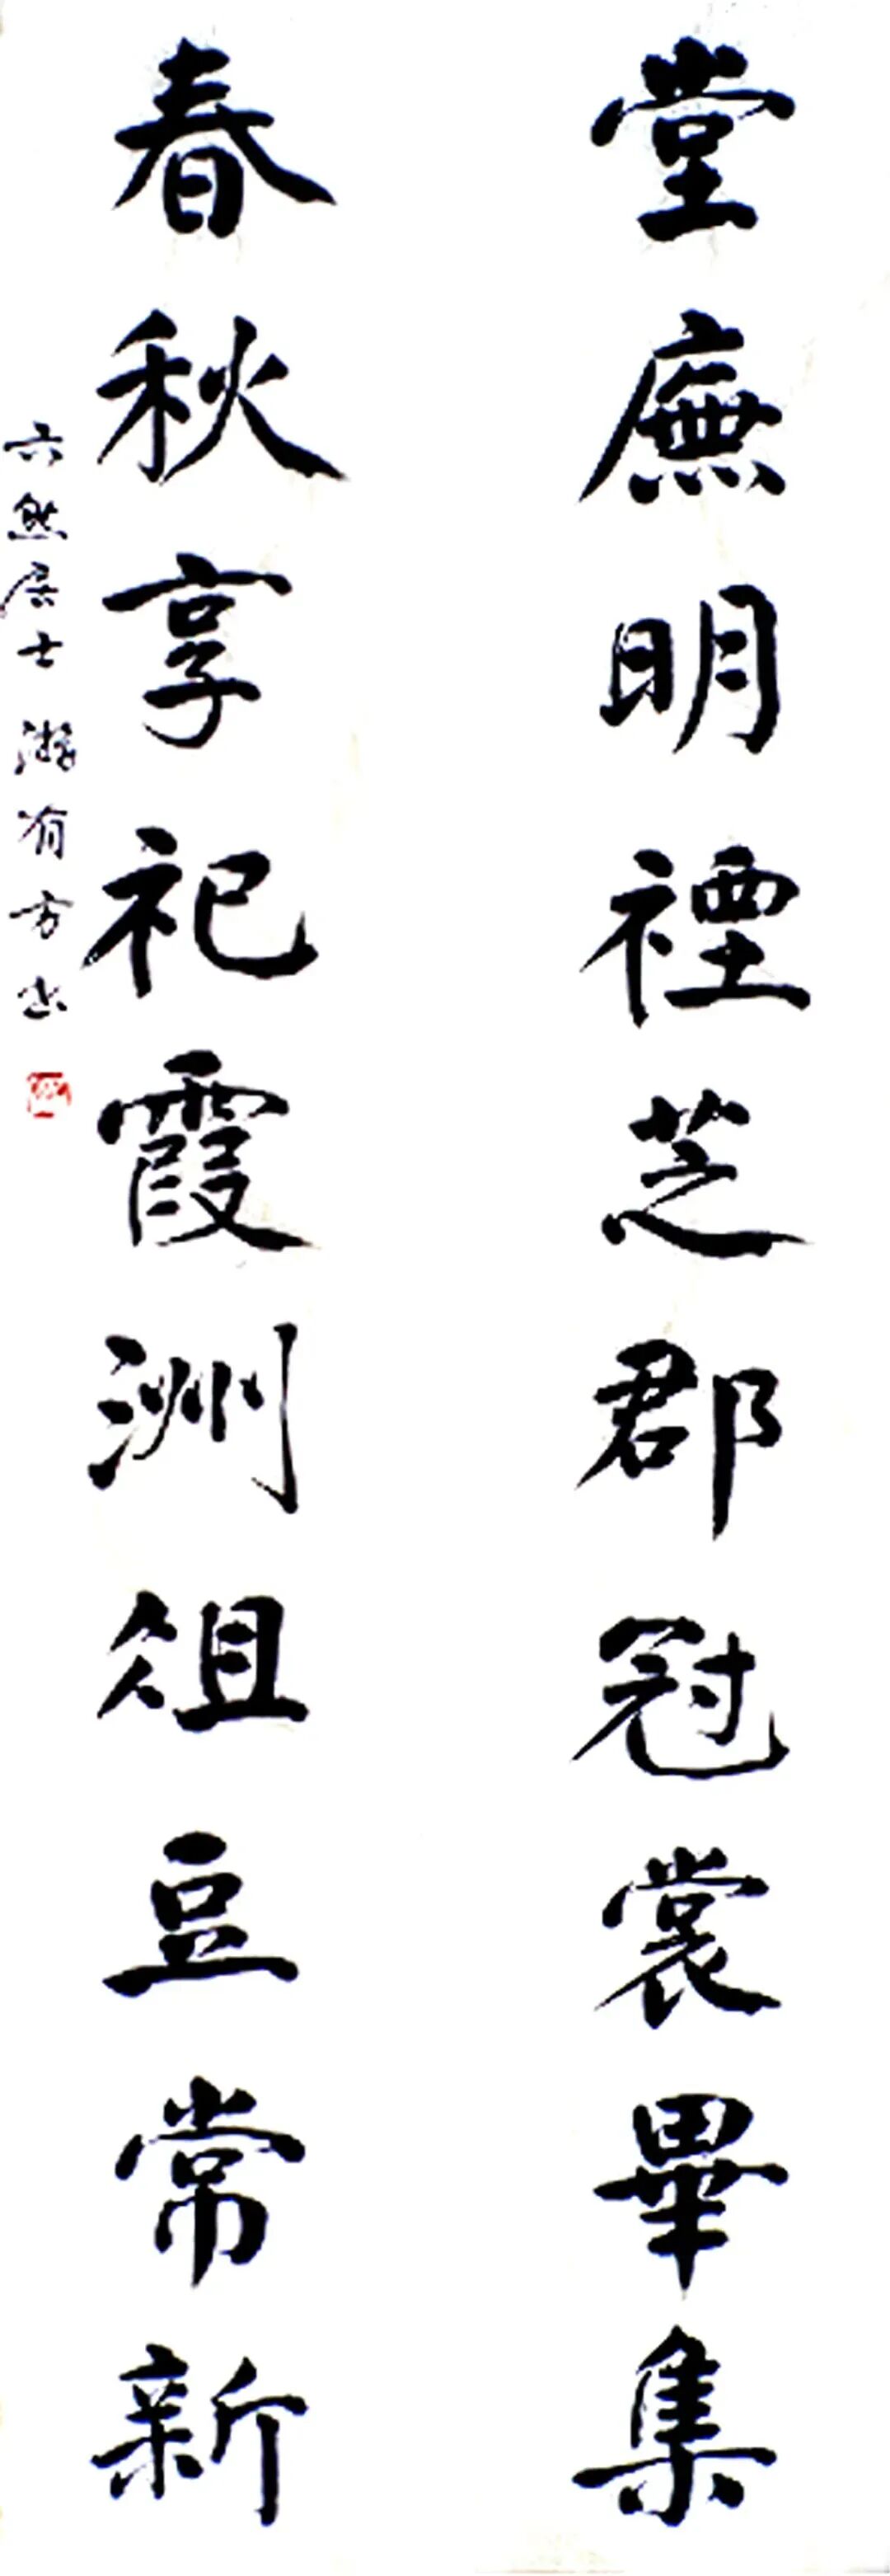 堂廡明禋芝郡冠裳畢集
春秋享祀霞洲俎豆常新
六然居士游有方书